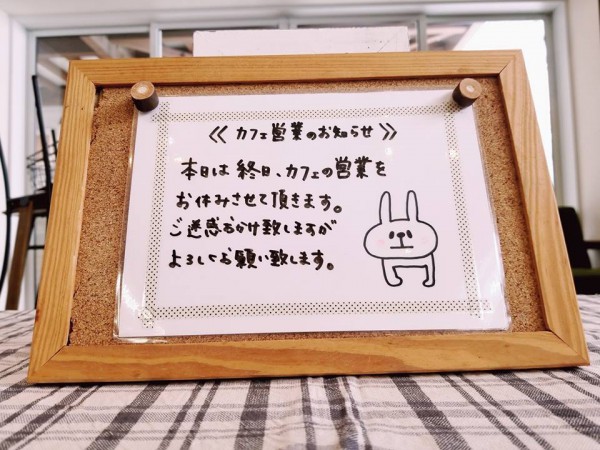 ≪ カフェ営業のお知らせ ≫
本日は 終日、カフェの営業を
お休みさせて頂きます。
ご迷惑おかけ致しますが
よろしくお願い致します。